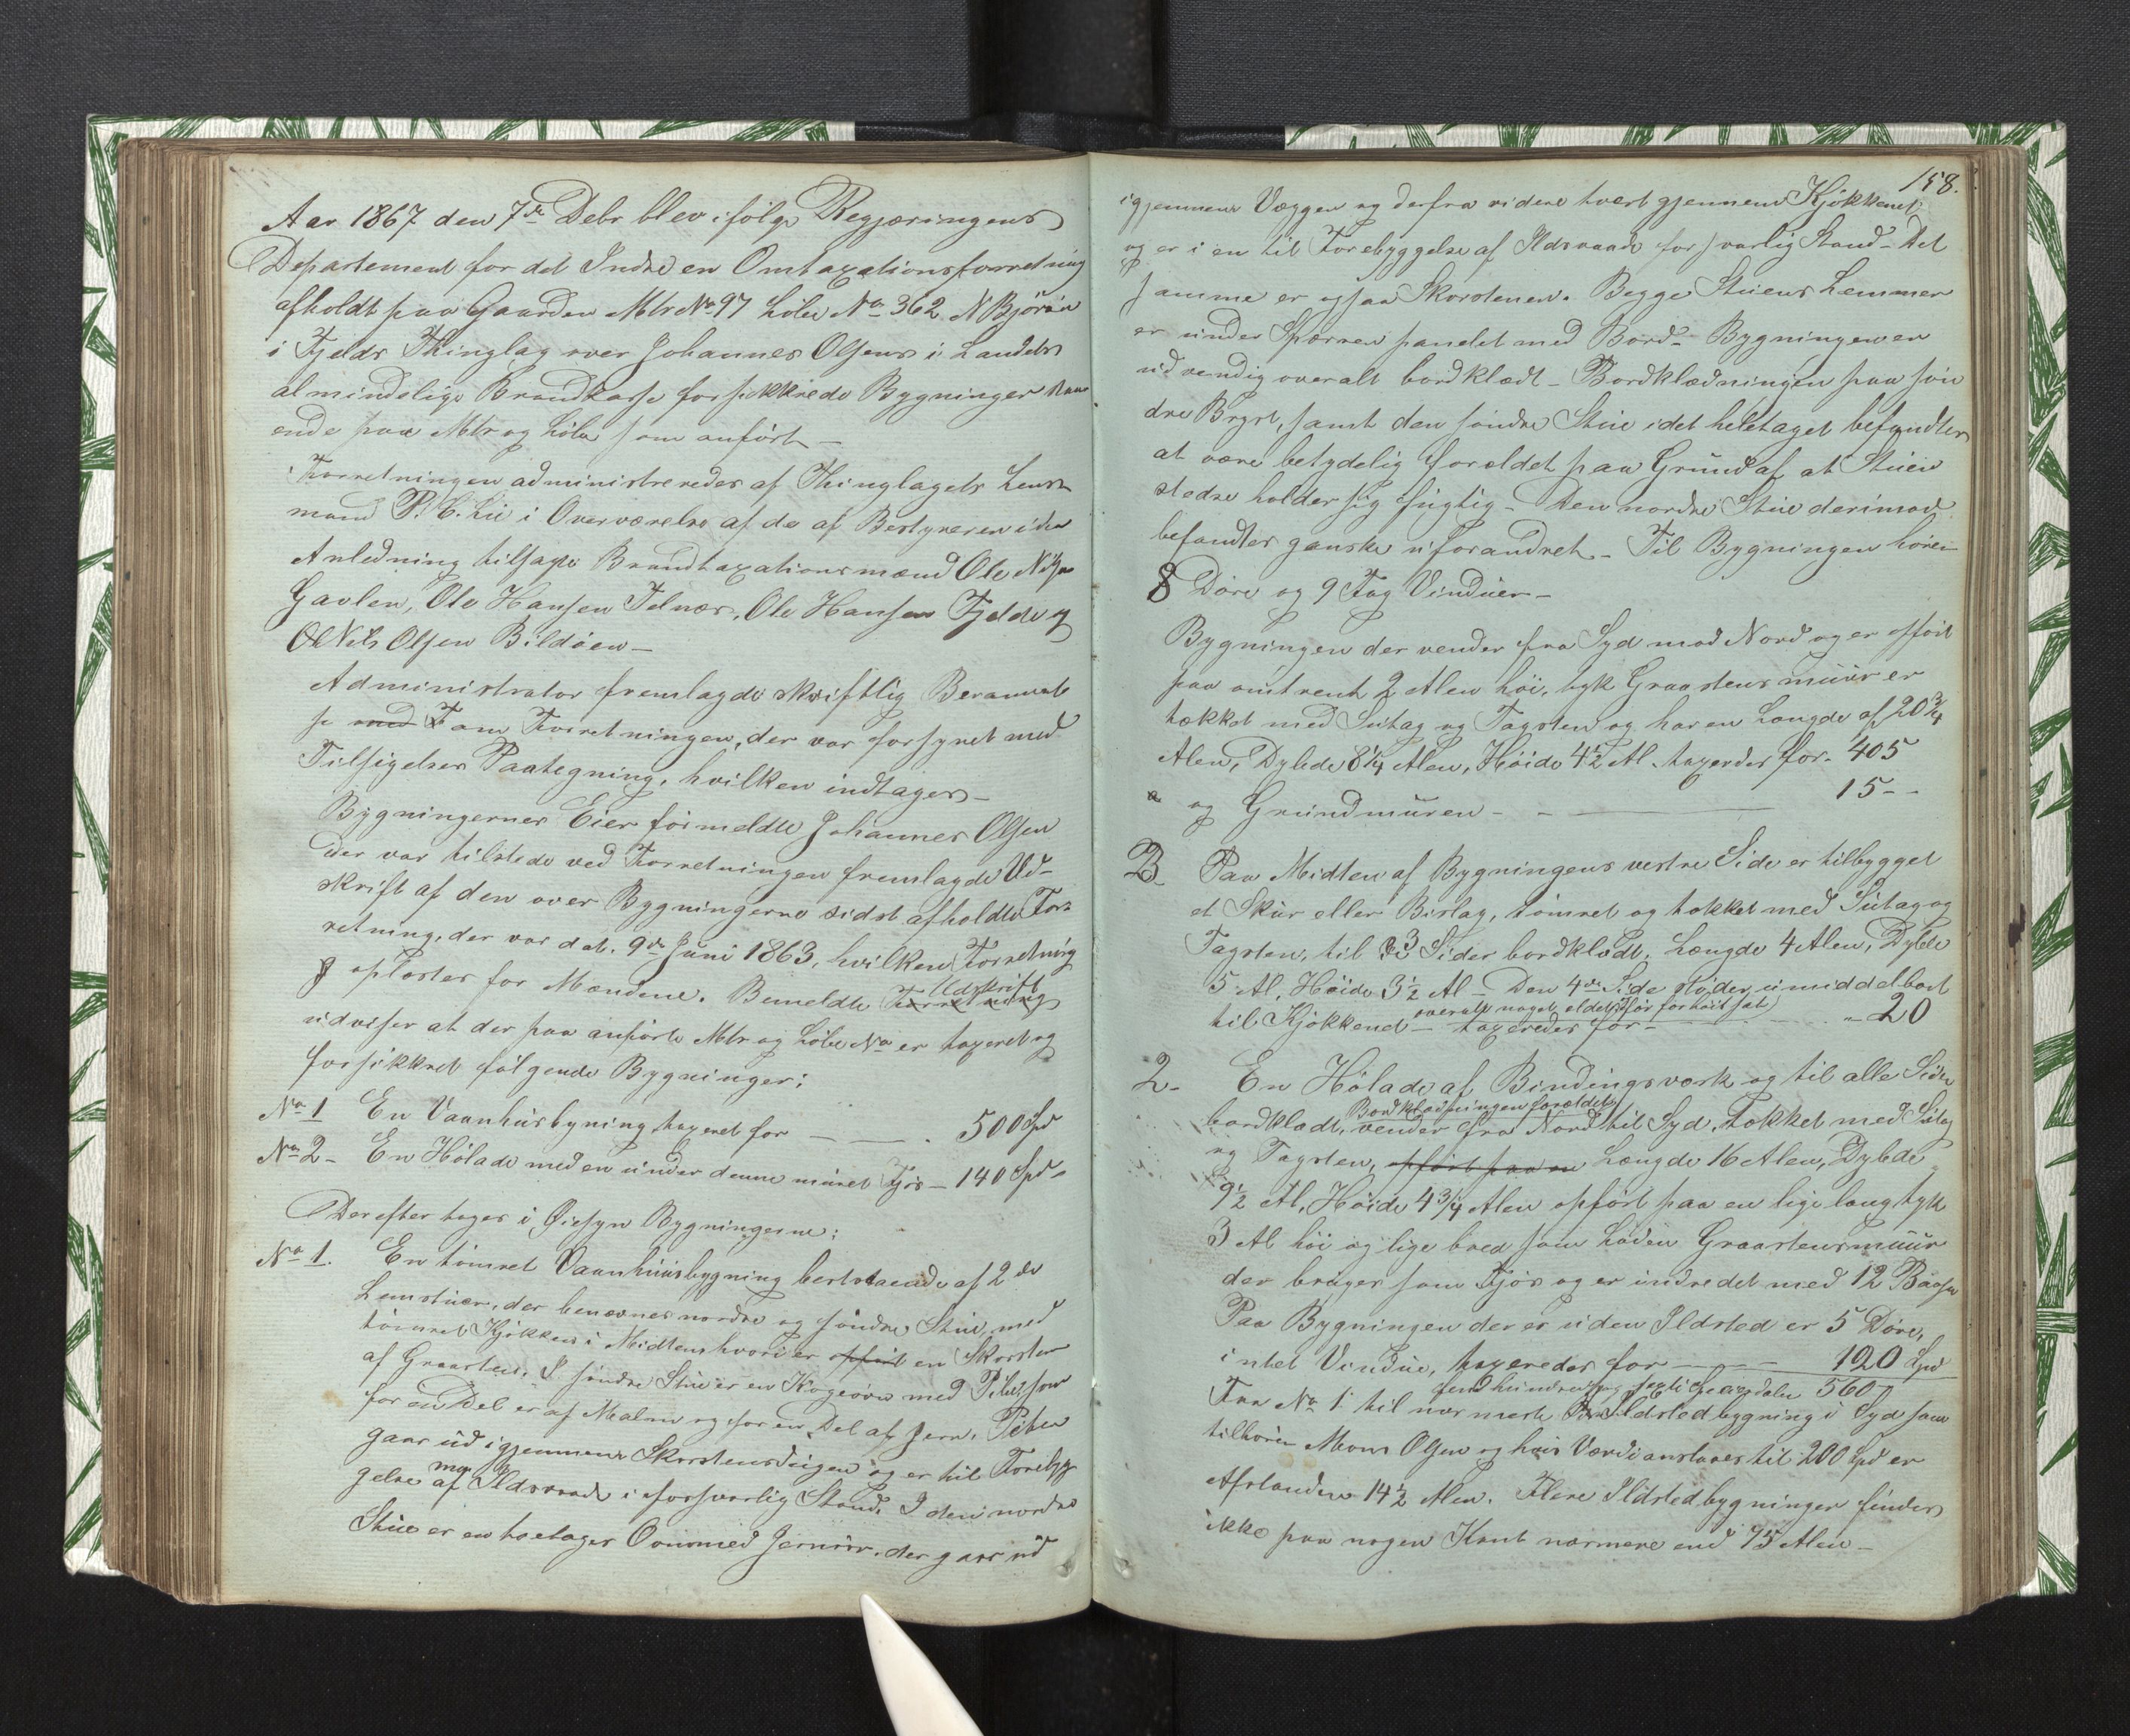 Aar 1867 den 7de Debr blev ifølge Regjæringens
Departement for det Indre en Omtaxationsforretning
afholdt paa Gaarden Mtr No 97 Löbe No 362 N Björöen
i Fjelds Thinglag over Johannes Olsens i Landets
almindelige Brandkasse forsikkrede Bygninger staa
ende paa Mtr og Löbe som anfört –
Forretningen administreredes af Thinglagets Lens
mand P. C. Lie i Overværelse af de af Bestyreren i den
Anledning tilsagte Brandtaxationsmænd Ole Nilsen
Gavlen, Ole Hansen Telnæs, Ole Hansen Fjelde og
Nils Olsen Bildöen –
Administrator fremlagde skriftlig Berammel
se med F om Forretningen, der var forsynet med
Tilsigelses Paategning, hvilken indtages –
Bygningernes Eier formeldte Johannes Olsen
der var tilstede ved Forretningen fremlagde Ud-
skrift af den over Bygningerne sidst afholdte For-
retning, der var dat. 9de Juni 1863, hvilken Forretning
oplæstes for Mændene. Bemeldte Forretning Udskrift
udviser at der paa anförte Mtr og Löbe No er taxeret og
forsikkret fölgende Bygninger:
No 1 En Vaanhusbyning taxeret for – – . 500 Spd
No 2 – En Hölade med en under denne muret Fjös – 140 Spd –
Derefter toges i Öiesyn Bygningerne:
No 1. En tömret Vaanhuusbygning bestaaende af 2de
Lemstuer, der benævnes nordre og söndre Stue, med
tömret Kjökken i Midten hvori er opfört en Skorsten
af Graasten. I söndre Stue er en Kogeovn med Piber, som
for en Del er af Malm og for en Del af Jern. Piben
gaar ud igjennem Skorstensvugen og er til Forebyg
gelse mod af Ildsvaade i forsvarlig Stand. I den nordre
Stue er en toetages Ovn med Jernrör, der gaar ud
158.
igjennem Væggen og derfra videre tvært gjennem Kjökkenet
og er i en til Forebyggelse af Ildsvaade forsvarlig Stand – Det
samme er ogsaa Skorstenen. Begge Stuens Lemmer
er under Sparren panelet med Bord – Bygningen er
udvendig overalt bordklædt – Bordklædningen paa sön
dre Bryst, samt den söndre Stue i det heletaget befandtes
at være betydelig forældet paa Grund af at Stuen
stedse holder sig fugtig – Den nordre Stue derimod
befandtes ganske uforandret – Til Bygningen hörer
8 Döre og 9 Fag Vinduer –
Bygningen der vender fra Syd mod Nord og er opfört
paa omtrent 2 Alen höi, tyk Graastensmuur er
tækket med Sutag og Tagsten og har en Længde af 20 3/4
Alen, Dybde 8 1/4 Alen, Höide 4 1/2 Al. taxerdes for – 405
a og Grundmuren – – 15 – –
B. Paa Midten af Bygningens vestre Side er tilbygget
et Skur eller Bislag, tömret og tækket med Sutag og
Tagsten, til 3 Sider bordklædt. Længde 4 Alen, Dybde
5 Al, Höide 3 1/2 Al – Den 4de Side stöder umiddelbart
overalt noget ældet (för for höit sat)
til Kjökkenet – taxeredes for – – 20
2 – En Hölade af Bindingsværk og til alle Sider
Bordklædningen forældet
bordklædt, vender fra Nord til Syd, tækket med Sutag
og Tagsten, opfört paa en Længde 16 Alen, Dybde
9 1/2 Al, Höide 4 3/4 Alen opfört paa en lige lang tyk
3 Al höi og lige bred som Laden Graastensmuur
der bruges som Fjös og er indredet med 12 Baase
Paa Bygningen der er uden Ildsted er 5 Döre,
intet Vindue, taxeredes for – – – 120 Spd
fem hundrede og sexti Speciedaler 560 –
Fra No 1 til nærmeste Ildstedbygning i Syd som
tilhörer Mons Olsen og hvis Værdi ansloges til 200 Spd er
Afstanden 14 1/2 Alen. Flere Ildstedbygninger findes
ikke paa nogen Kant nærmere end 75 Alen –